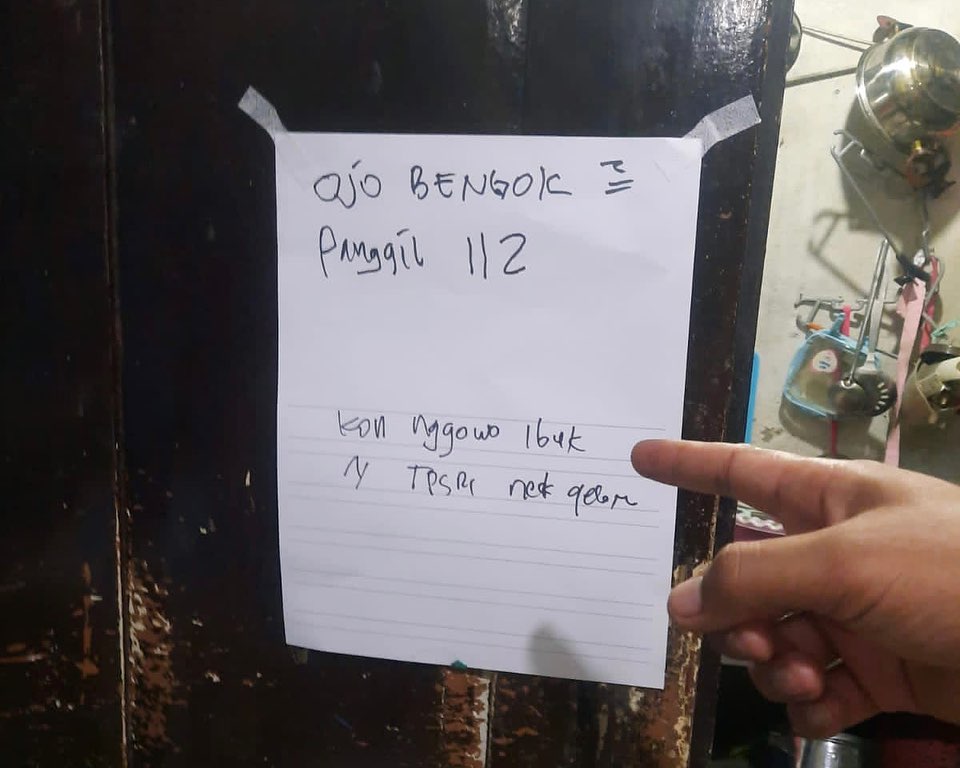 OJO BENGOK =
Panggil 112
kon nggowo Ibuk
N TPSR nek gelem